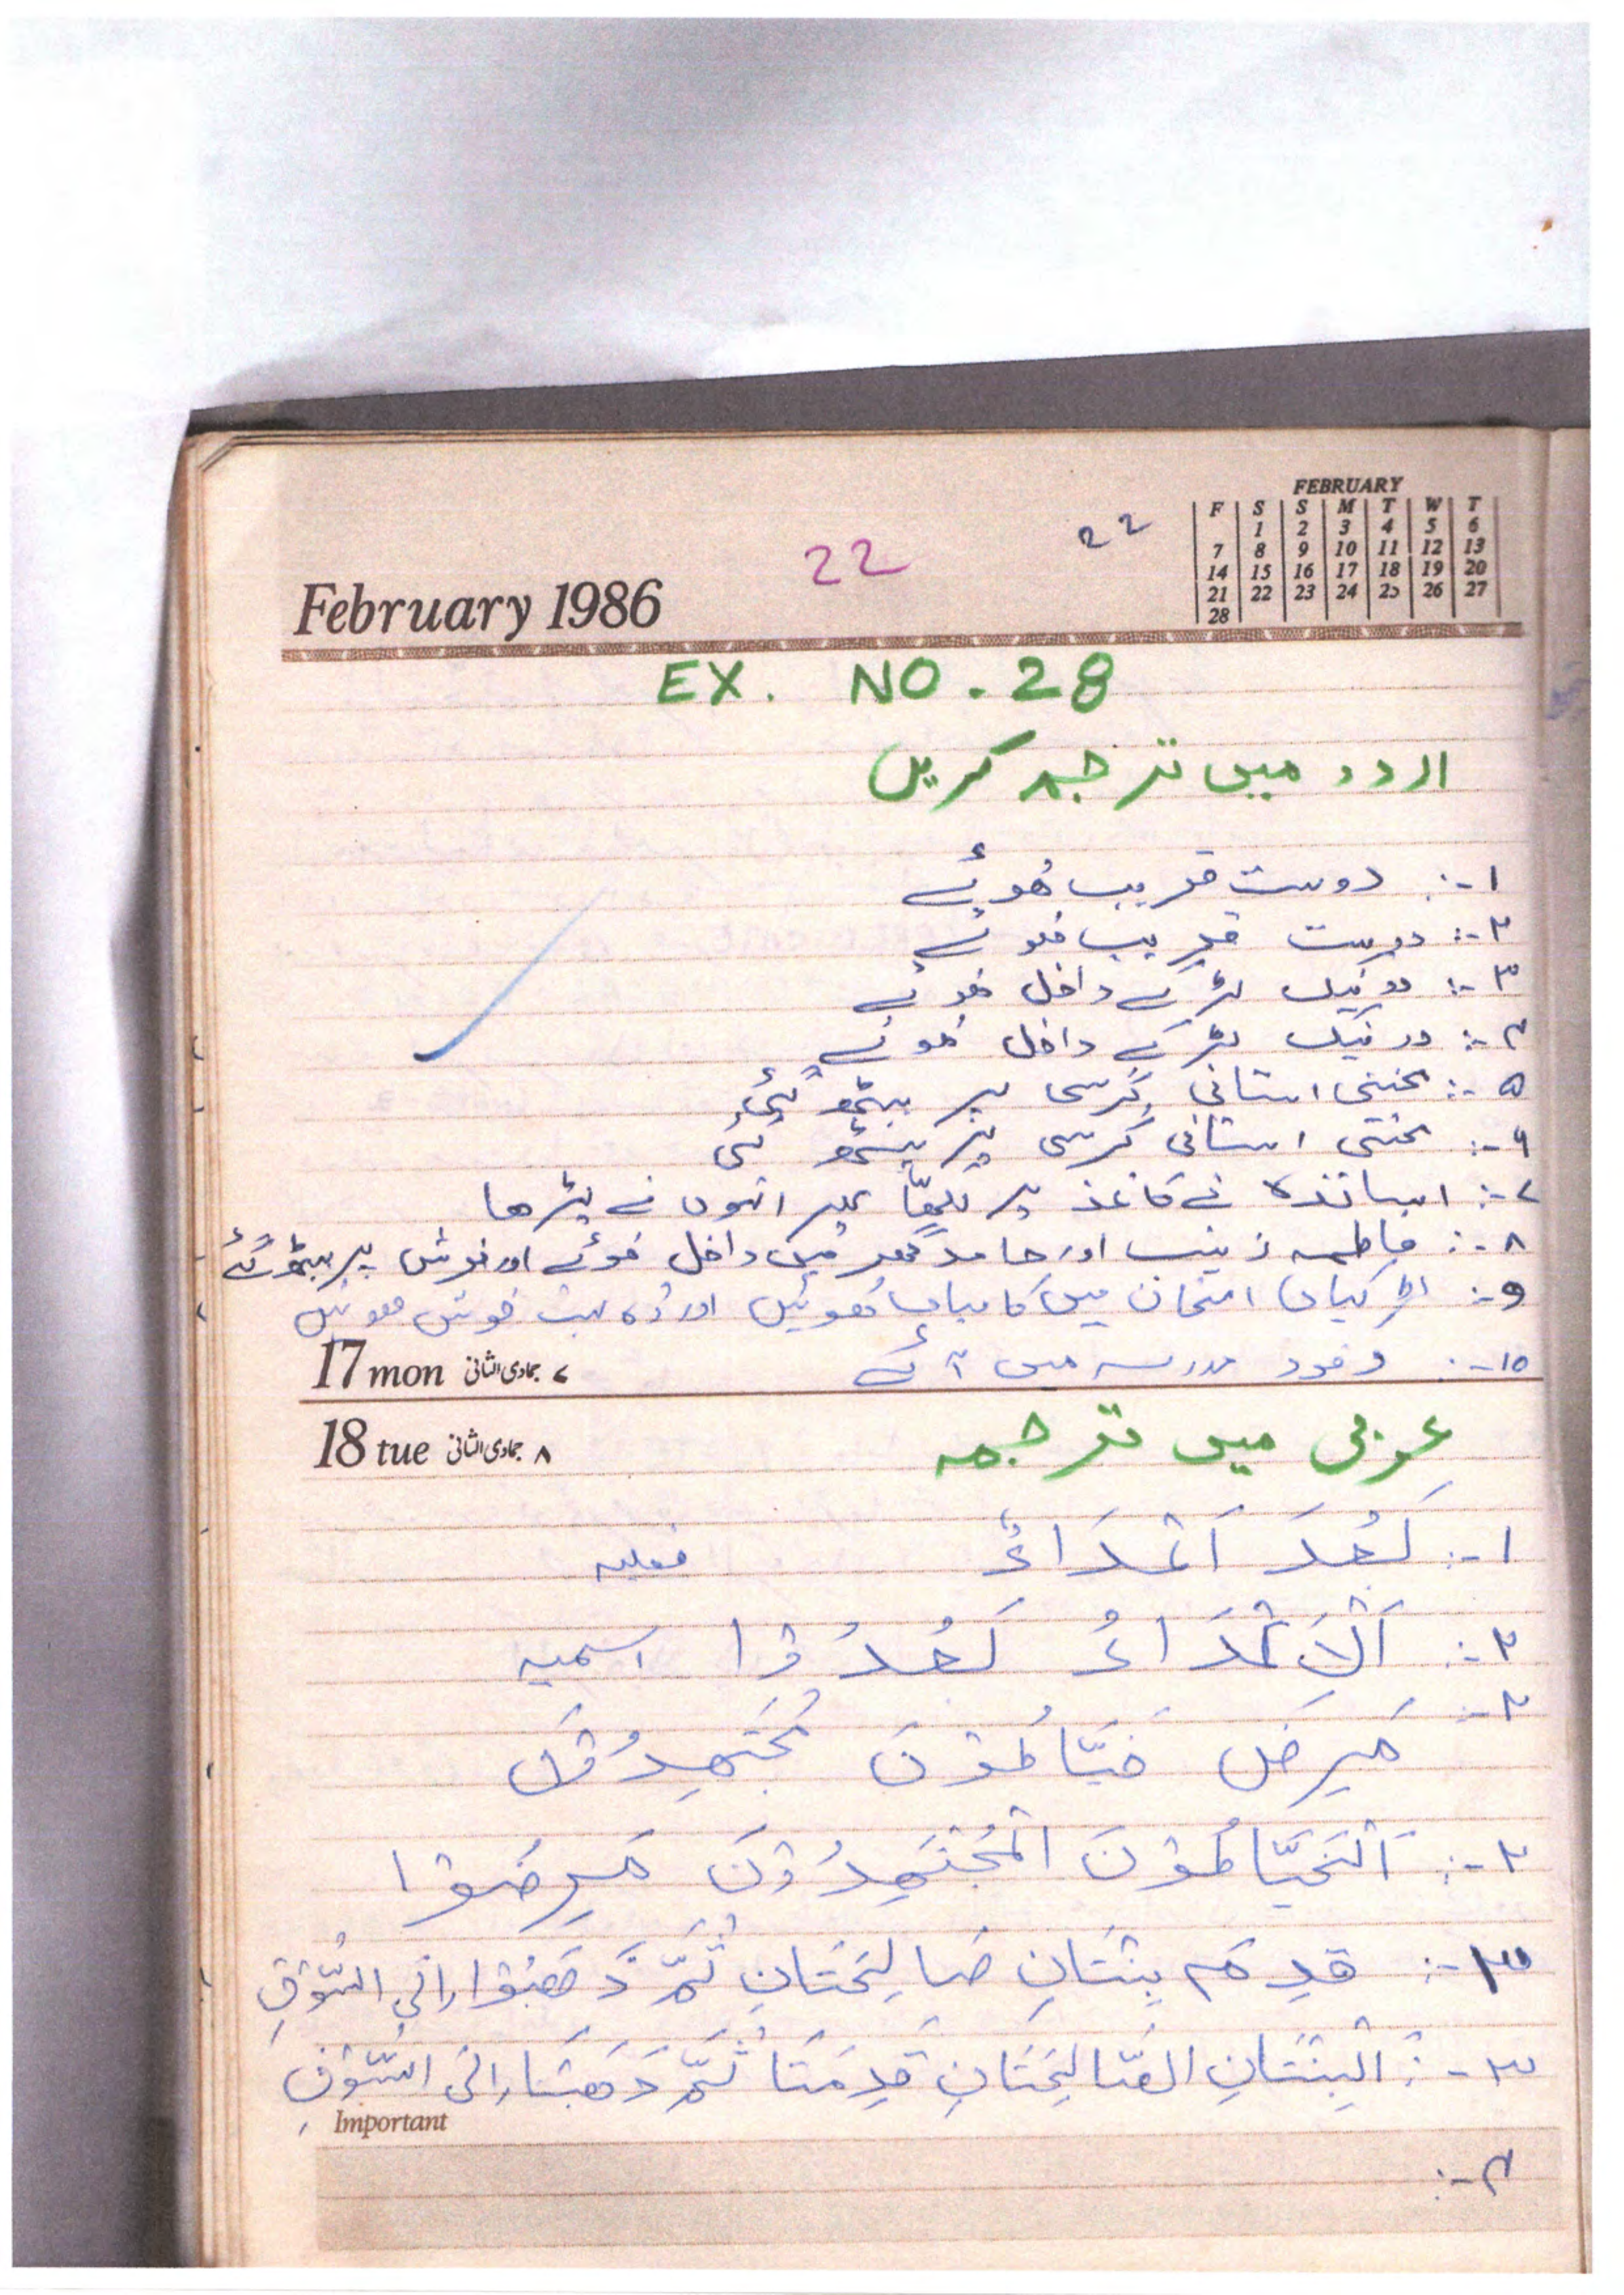 February 1986
22
22
FEBRUARY
F S S M T W T
1 2 3 4 5 6
7 8 9 10 11 12 13
14 15 16 17 18 19 20
21 22 23 24 25 26 27
28
EX. NO. 28
اردو میں ترجمہ کریں
۱-: دوست قریب ھوئے
۲-: دوست قریب ھوئے
۳-: دو نیک لڑکے داخل ھوئے
۴-: دو نیک لڑکے داخل ھوئے
۵-: محنتی استانی کرسی پر بیٹھ گئی
۶-: محنتی استانی کرسی پر بیٹھ گئی
۷-: اساتذہ نے کاغذ پر لکھا پھر انہوں نے پڑھا
۸-: فاطمہ زینب اور حامد گھر میں داخل ھوئے اور فرش پر بیٹھ گئے
۹-: لڑکیاں امتحان میں کامیاب ھوئیں اور وہ بہت خوش ھوئیں
۱۰-: وفود مدرسہ میں آئے
17 mon ۷ جمادی الثانی
18 tue ۸ جمادی الثانی
عربی میں ترجمہ
۱-: بَعُدَ اَعْدَاءٌ فعلیہ
۲-: اَلْاَعْدَاءُ بَعُدُوْا اسمیہ
۲-:
مَرِضَ خَيَّاطُوْنَ مُجْتَهِدُوْنَ
۲-: اَلْخَيَّاطُوْنَ الْمُجْتَهِدُوْنَ مَرِضُوْا
۳-: قَدِمَ بِنْتَانِ صَالِحَتَانِ ثُمَّ ذَهَبُوْا اِلَى السُّوْقِ
۳-: اَلْبِنْتَانِ الصَّالِحَتَانِ قَدِمَتَا ثُمَّ ذَهَبَتَا اِلَى السُّوْقِ
Important
۴-: